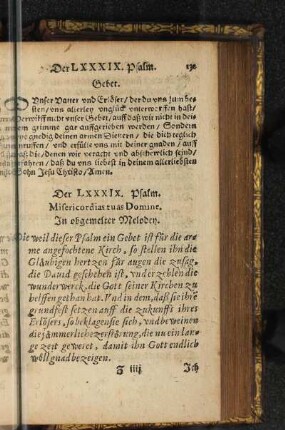 Der LXXXIX. Psalm.
Gebet.
Vnser Vatter vnd Erlöser/ der du vns zum be
sten/ vns allerley vnglück vnterworffen hast/
verwirff nicht vnser Gebet/ auff daß wir nicht in dei
nem grimme gar auffgerieben werden/ Sondern
gnedig deinen armen Dienern/ die dich teglich
anruffen/ vnd erfülle vns mit deiner gnaden/ auff
daß die/ denen wir veracht vnd abschewlich seind/
erfahren/ daß du vns liebest in deinem allerliebsten
Sohn Jesu Christo/ Amen.
Der LXXXIX. Psalm.
Misericordias tuas Domine.
In obgemelter Melodey.
Die weil dieser Psalm ein Gebet ist für die ar=
me angefochtene Kirch, so stellen ihn die
Gläubigen hertzen für augen die zusag,
die Dauid geschehen ist, vnd erzehlen die
wunderwerck, die Gott seiner Kirchen zu
helffen gethan hat. Vnd in dem, daß sie ihre
grundfest setzen auff die zukunfft ihres
Erlösers, so beklagen sie sich, vnd beweinen
die jämmerliche zerstörung, die nu ein lan=
ge zeit gewert, damit ihn Gott endlich
wöll gnad bezeigen.
Z iiij Ich